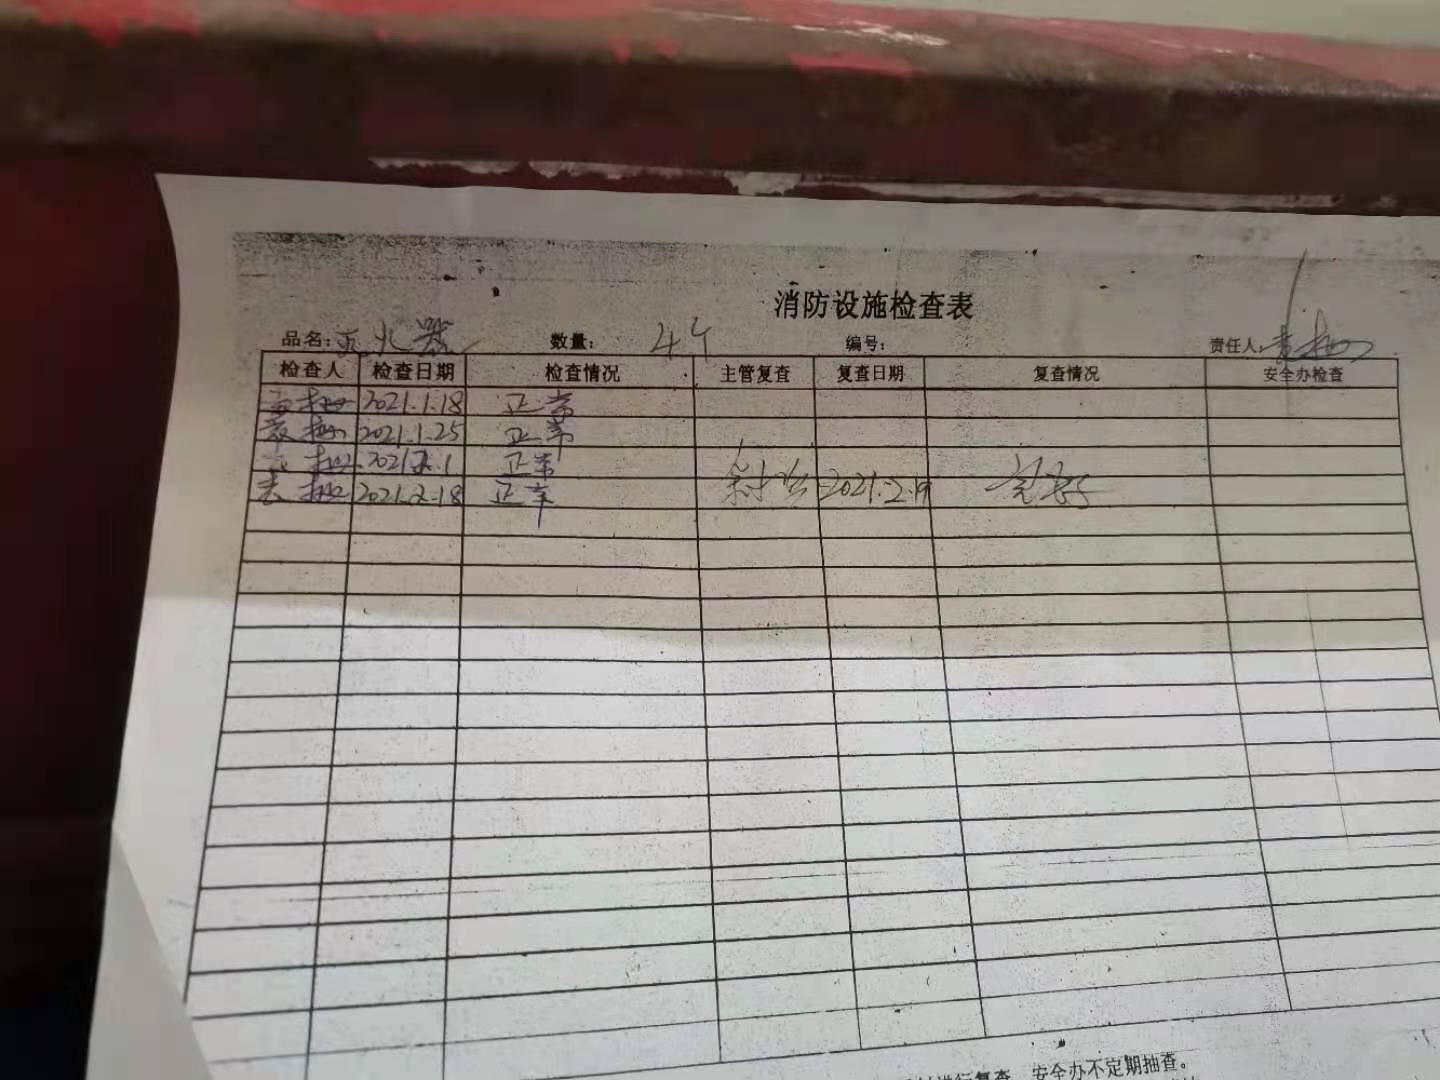 消防设施检查表
品名: 灭火器 数量: 4个 编号: 责任人:
检查人 检查日期 检查情况 主管复查 复查日期 复查情况 安全办检查
2021.1.18 正常
2021.1.25 正常
2021.2.1 正常
2021.2.18 正常 2021.2.19 完好
进行复查，安全办不定期抽查。